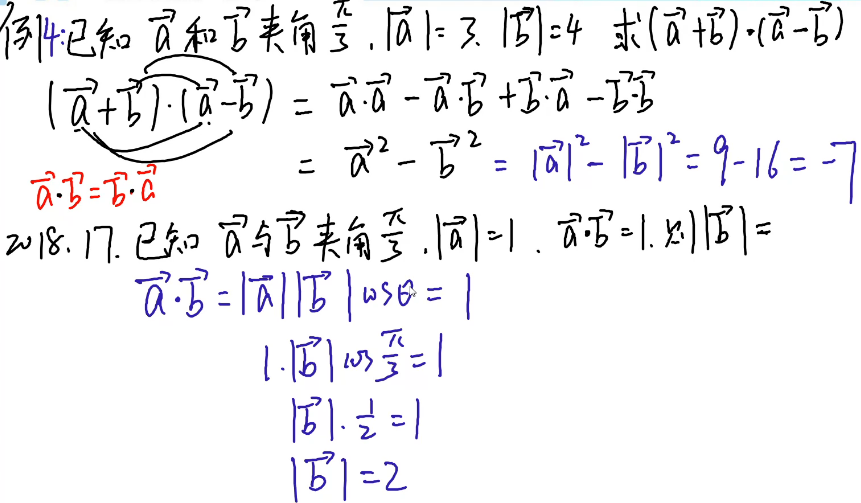 例4:已知 $\vec{a}$ 和 $\vec{b}$ 夹角 $\frac{\pi}{3}$, $|\vec{a}|=3$, $|\vec{b}|=4$ 求 $(\vec{a}+\vec{b})\cdot(\vec{a}-\vec{b})$
$(\vec{a}+\vec{b})\cdot(\vec{a}-\vec{b}) = \vec{a}\cdot\vec{a}-\vec{a}\cdot\vec{b}+\vec{b}\cdot\vec{a}-\vec{b}\cdot\vec{b}$
$= \vec{a}^2-\vec{b}^2 = |\vec{a}|^2-|\vec{b}|^2 = 9-16 = -7$
$\vec{a}\cdot\vec{b}=\vec{b}\cdot\vec{a}$
2018.17. 已知 $\vec{a}$ 与 $\vec{b}$ 夹角 $\frac{\pi}{3}$, $|\vec{a}|=1$, $\vec{a}\cdot\vec{b}=1$. 则 $|\vec{b}|=$
$\vec{a}\cdot\vec{b}=|\vec{a}||\vec{b}|\cos\theta=1$
$1\cdot|\vec{b}|\cos\frac{\pi}{3}=1$
$|\vec{b}|\cdot\frac{1}{2}=1$
$|\vec{b}|=2$